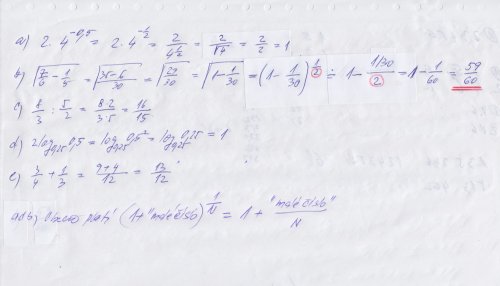 a) 2·4^-0,5 = 2·4^-1/2 = 2/4^1/2 = 2/√4 = 2/2 = 1
b) √(7/6 - 1/5) = √((35-6)/30) = √(29/30) = √(1 - 1/30) = (1 - 1/30)^1/2 ≐ 1 - (1/30)/2 = 1 - 1/60 = 59/60
c) 8/3 : 5/2 = 8·2/3·5 = 16/15
d) 2log0,25 0,5 = log0,25 0,5² = log0,25 0,25 = 1
e) 3/4 + 1/3 = (9+4)/12 = 13/12
ad b) Obecně platí (1+"malé číslo")^1/N = 1 + "malé číslo"/N